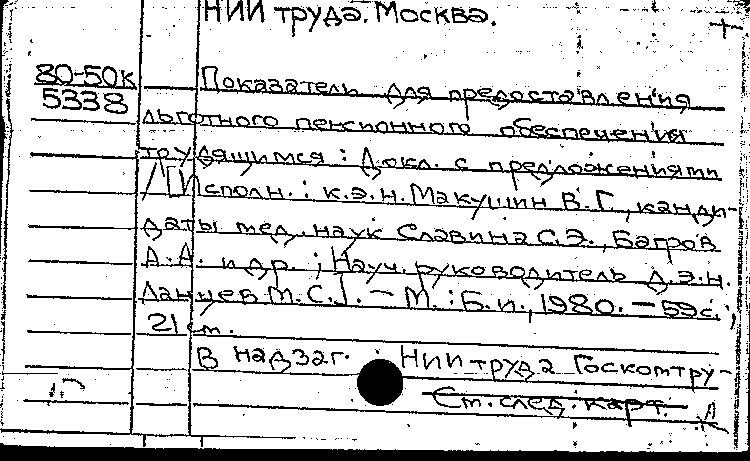 НИИ труда. Москва.
80-50к
5338
Показатель для предоставления
льготного пенсионного обеспечения
трудящимся : Докл. с предложениями
/ [Исполн. : к.э.н. Макушин В.Г., канди-
даты мед. наук Славина С.Э., Багров
А.А. и др. ; Науч. руководитель д.э.н.
Ланцев М.С.]. - М. : Б.и., 1980. - 59с.;
21 см.
В надзаг. : НИИ труда Госкомтру-
См. след. карт.